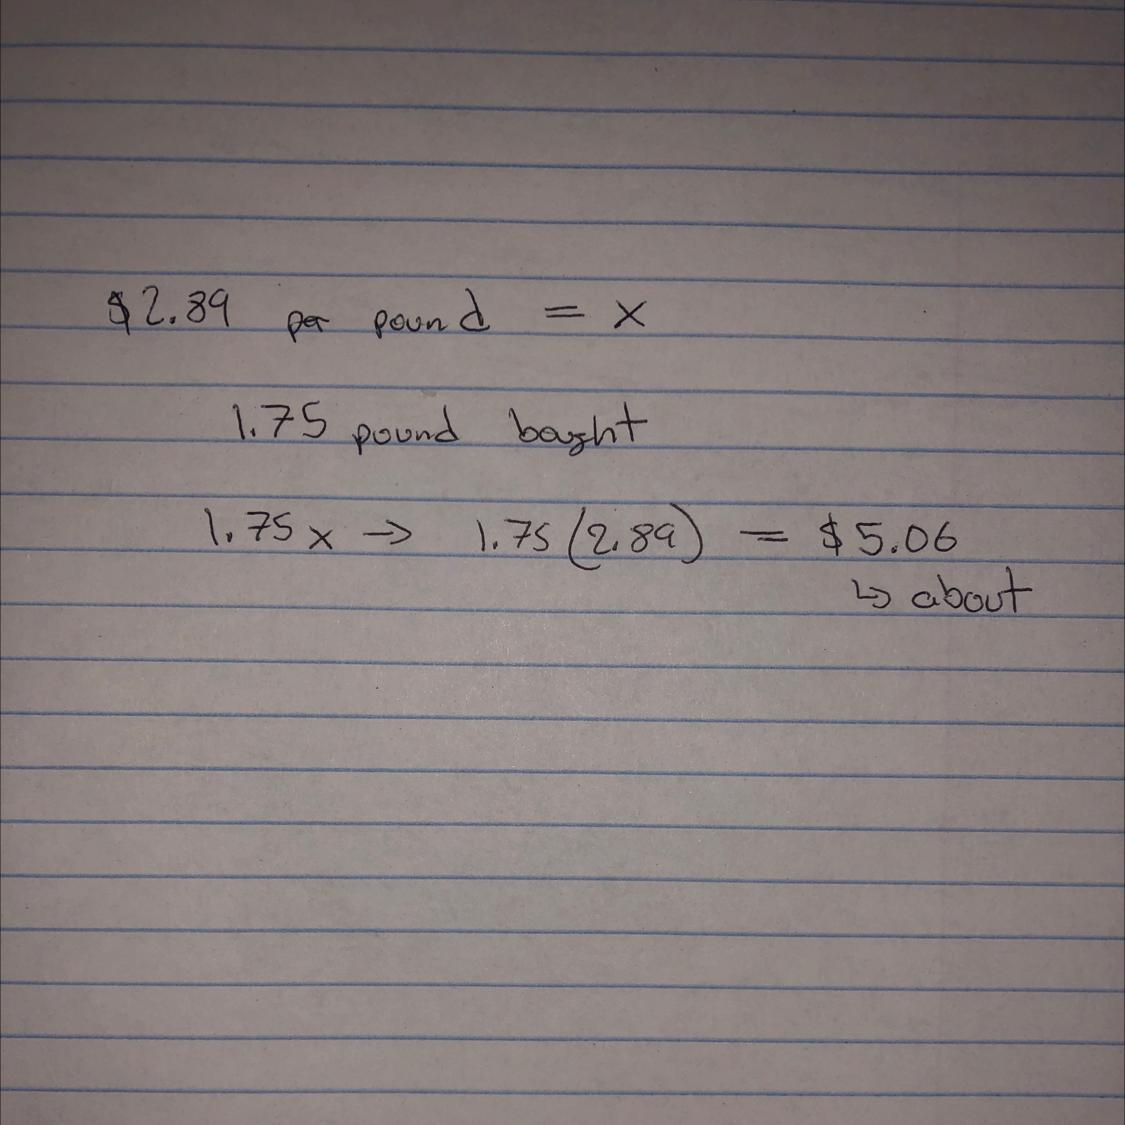 $2.89 per pound = x
1.75 pound bought
1.75x → 1.75(2.89) = $5.06
↳ about